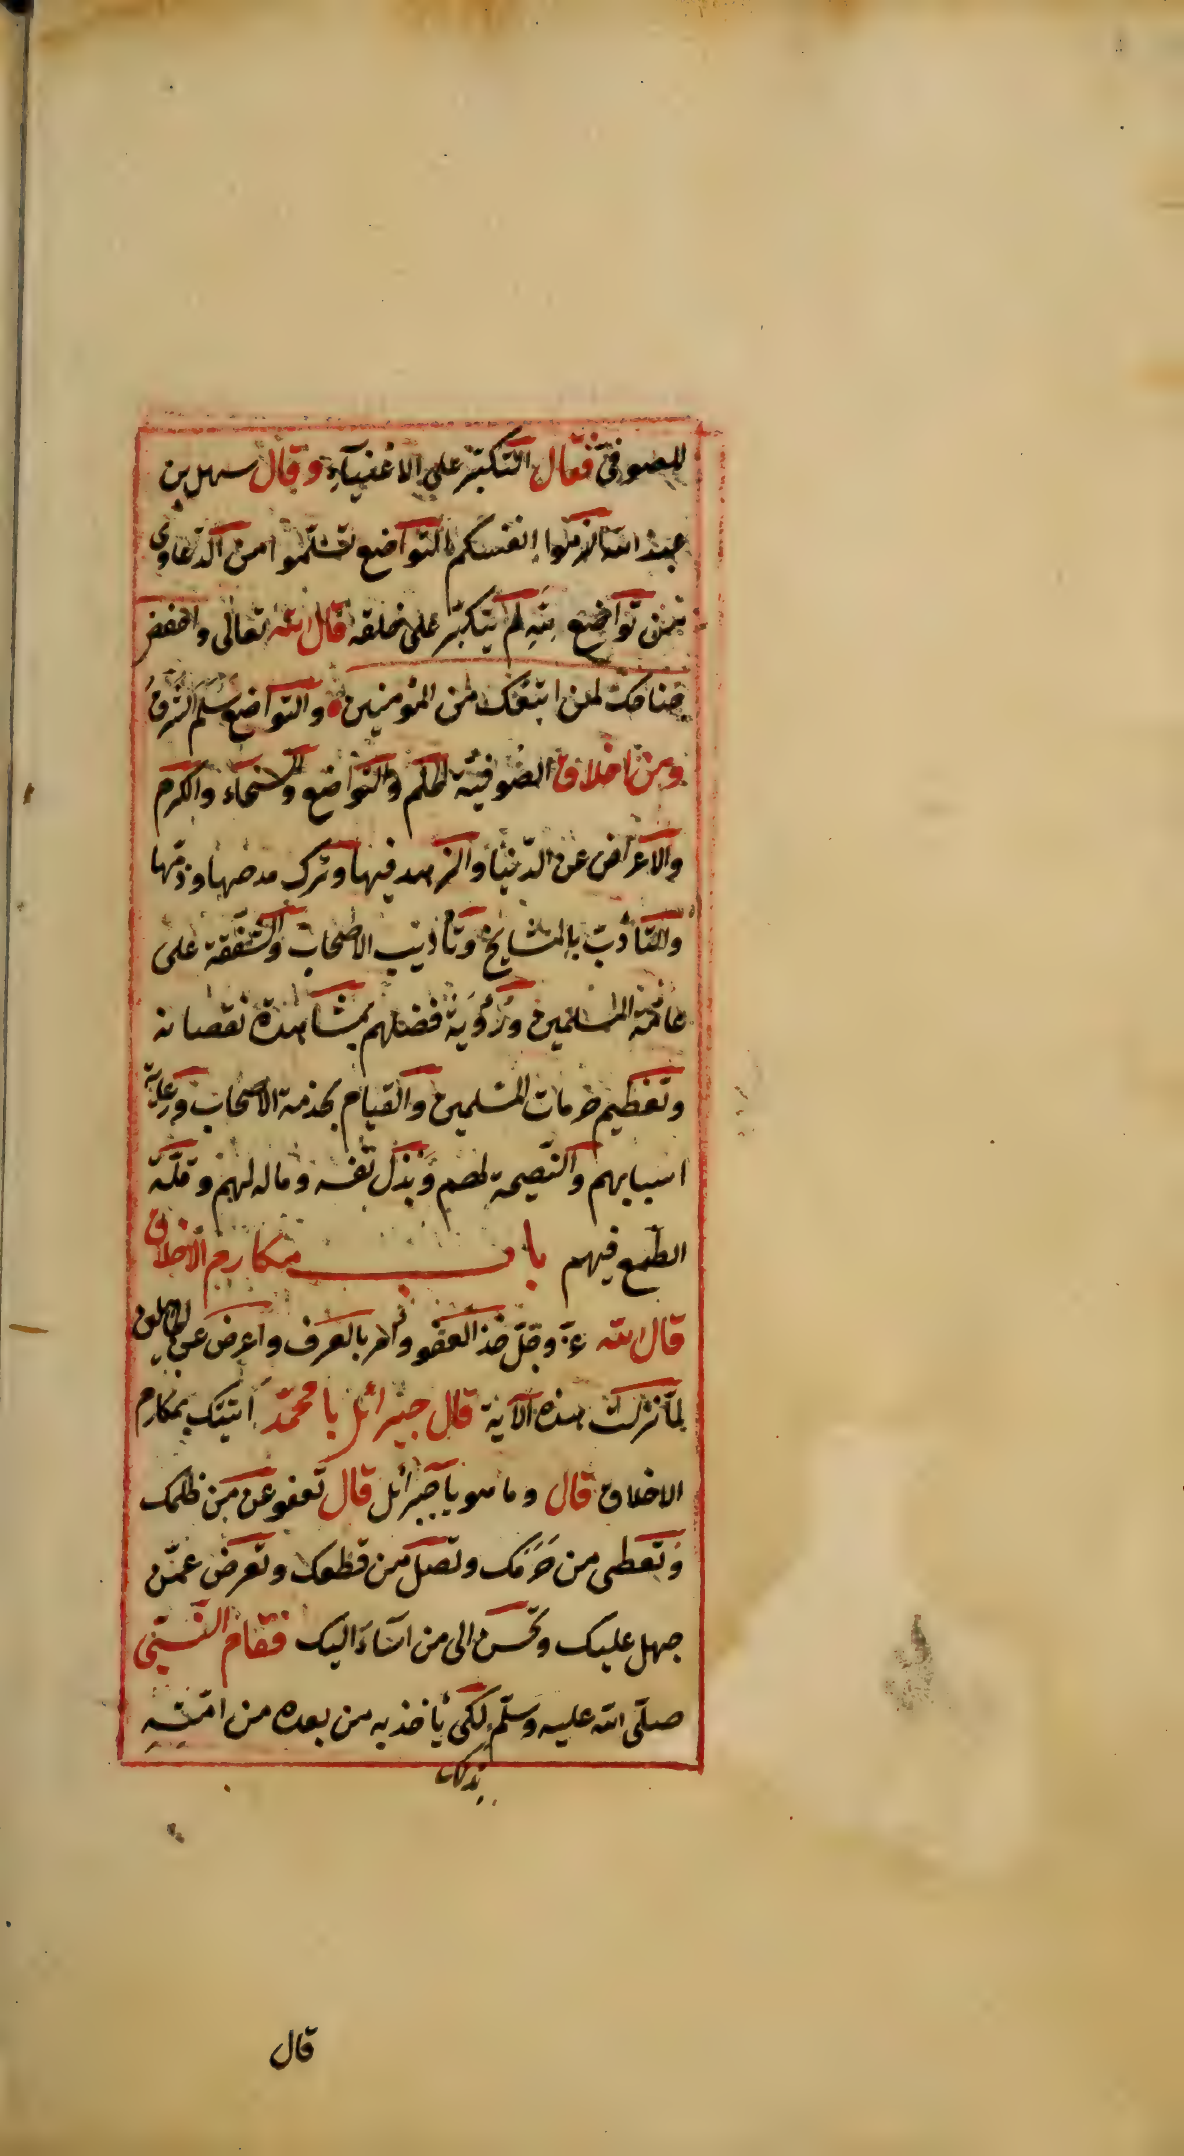 للصوفیة فقال التکبّر علی الاغنیآءِ وقال سهل بن
عبد اللّه الزموا انفسکم بالتواضع تسلّموا من الدّعاوی
فمن تواضع للّهِ لم یتکبّر علی خلقه قال اللّه تعالی واخفض
جناحک لمن اتبعک من المؤمنین والتواضع سُلَّم الشّرفُ
ومن اخلاق الصوفیّة الحلم والتواضع والسخاء والکرم
والاعراض عن الدّنیا والزهد فیها وترک مدحها وذمّها
والتّأدّب بالمشایخ وتأدیب الاصحاب والشّفقة علی
عامّة المسلمین ورُؤیَة فضلهم بمشاهدة نقصانه
وتعظیم حرمات المسلمین والقیام بخدمة الاصحاب ورعایة
اسبابهم والنّصیحة لهم وبذل نفسه وماله لهم وقلّة
الطمع فیهم باب مکارم الاخلاق
قال اللّه عزّ وجلّ خذ العفو وأمر بالعرف واعرض عن الجاهلین
لمّا نزلت هذه الآیة قال جبرائل یا محمّد أتیتک بمکارم
الاخلاق قال وما هو یا جبرائل قال تعفو عن من ظلمک
وتعطی من حَرَمَک وتصل من قطعک وتعرض عمّن
جهل علیک وتحسن الی من اسآءَ الیک فقام النّبیّ
صلّی اللّه علیه وسلّم لکی یأخذ به من بعده من امّتِهِ
بذلک
قال